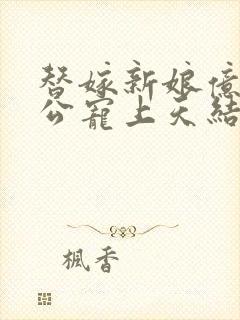 替嫁新娘億
公寵上天結
楓香